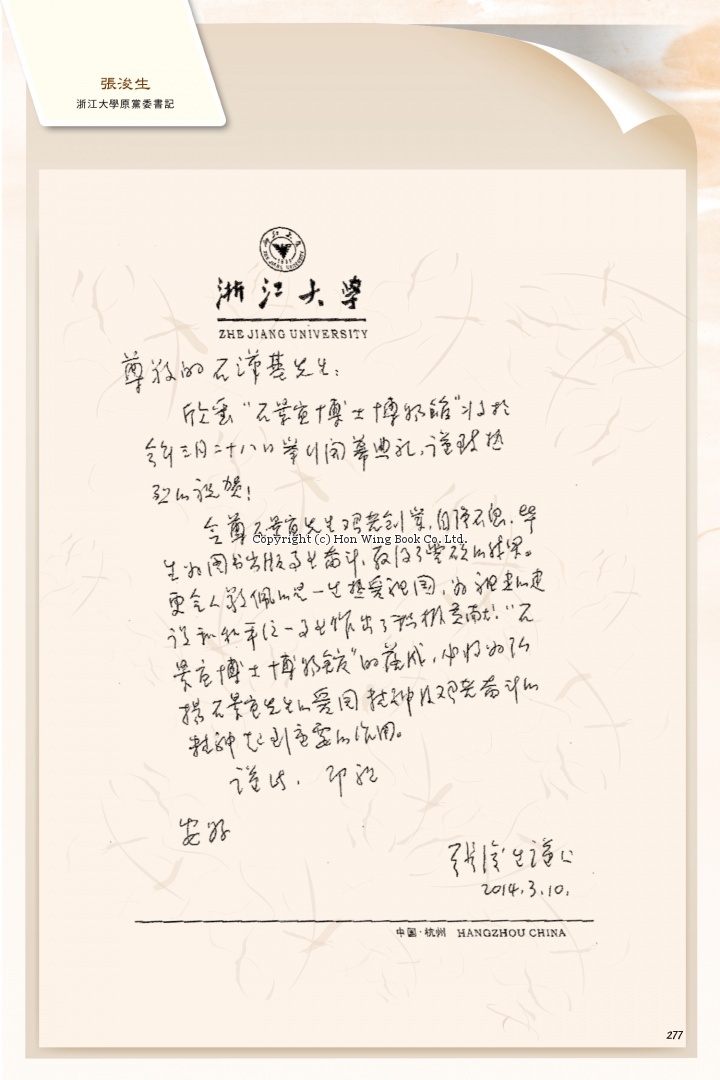 張浚生
浙江大學原黨委書記
浙江大學
ZHE JIANG UNIVERSITY
尊敬的石漢基先生：
欣悉“石景宜博士博物館”将於
今年三月二十八日举行開幕典礼，谨致热
烈的祝贺！
令尊石景宜先生艰苦創業，自强不息，毕
Copyright (c) Hon Wing Book Co. Ltd.
生为图书出版事业奋斗，取得了丰硕的成果。
更令人敬佩的是一生热爱祖国，为祖国的建
设和和平统一事业作出了积极贡献！“石
景宜博士博物館”的落成，必将为弘
揚石景宜先生的爱国精神及艰苦奋斗的
精神起到重要的作用。
谨此，即祝
安好
張浚生谨上
2014.3.10.
中国·杭州 HANGZHOU CHINA
277